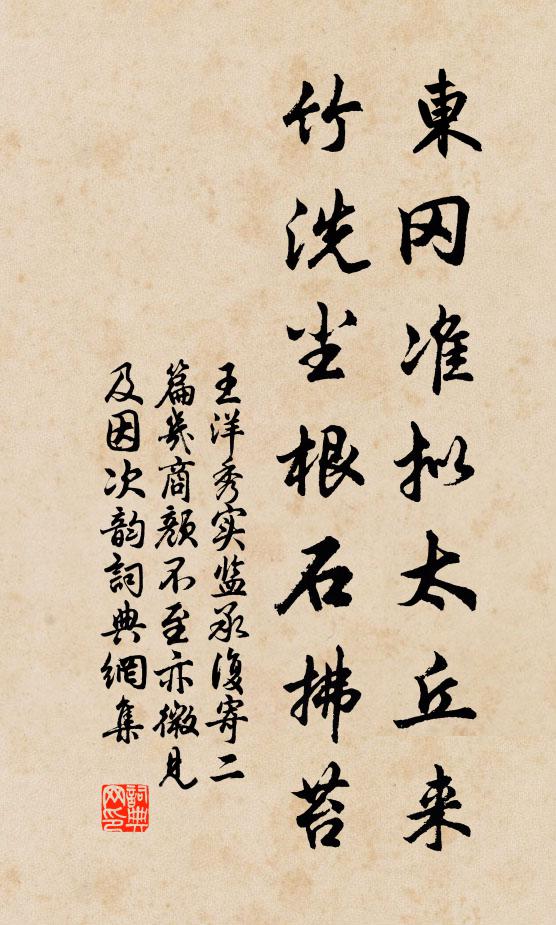 東冈准拟太丘来
竹洗尘根石拂苔
王洋秀实监丞復寄二
篇幾商顔不至亦微見
及因次韵詞典網集
詞典网印